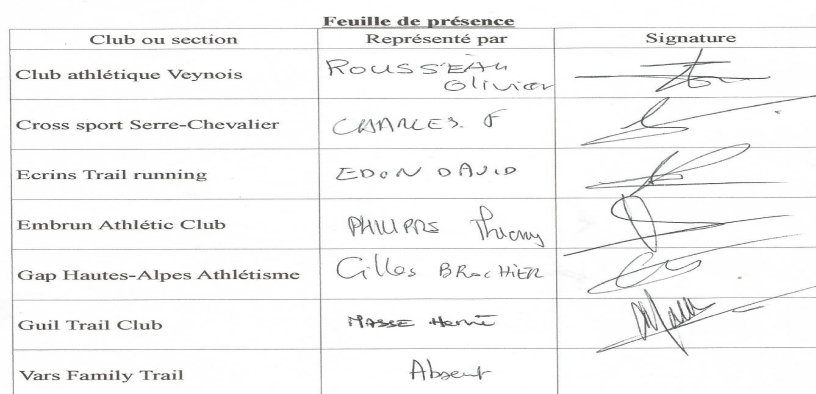 Feuille de présence
Club ou section Représenté par Signature
Club athlétique Veynois ROUSSEAU
Olivier
Cross sport Serre-Chevalier CHARLES. F
Ecrins Trail running EDON DAVID
Embrun Athlétic Club PHILIPPS Thierry
Gap Hautes-Alpes Athlétisme Gilles BROCHIER
Guil Trail Club MASSE Hervé
Vars Family Trail Absent